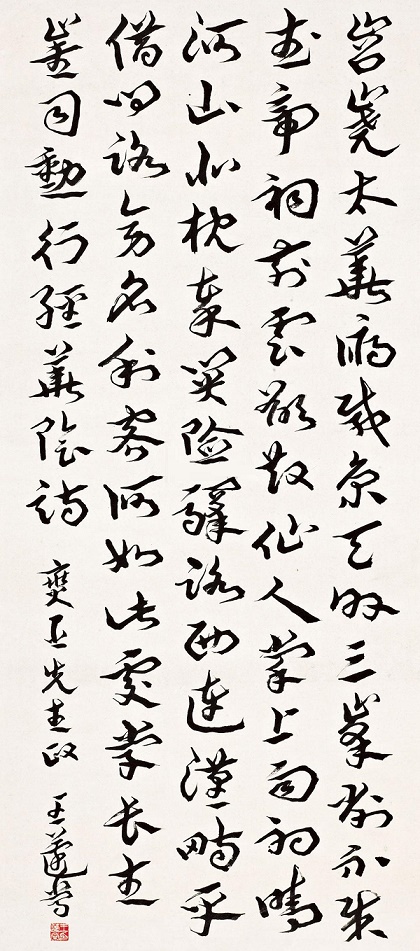 岧嶢太華俯咸京天外三峯削不成
武帝祠前雲欲散仙人掌上雨初晴
河山北枕秦關險驛路西連漢畤平
借問路旁名利客何如此處學長生
崔司勳行經華陰詩 燮五先生政 王蘧常